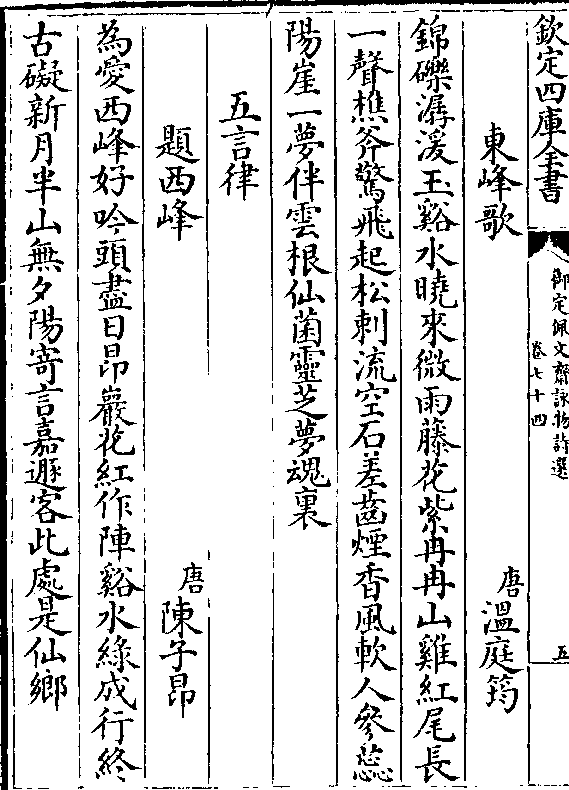 欽定四庫全書
御定佩文齋詠物詩選
卷七十四
五
東峰歌
唐溫庭筠
錦礫潺湲玉谿水曉來微雨藤花紫冉冉山雞紅尾長
一聲樵斧驚飛起松刺流空石差齒煙香風軟人參蕊
陽崖一夢伴雲根仙菌靈芝夢魂裏
五言律
題西峰
唐陳子昂
為愛西峰好吟頭盡日昂巖花紅作陣谿水綠成行終
古礙新月半山無夕陽寄言嘉遯客此處是仙鄉